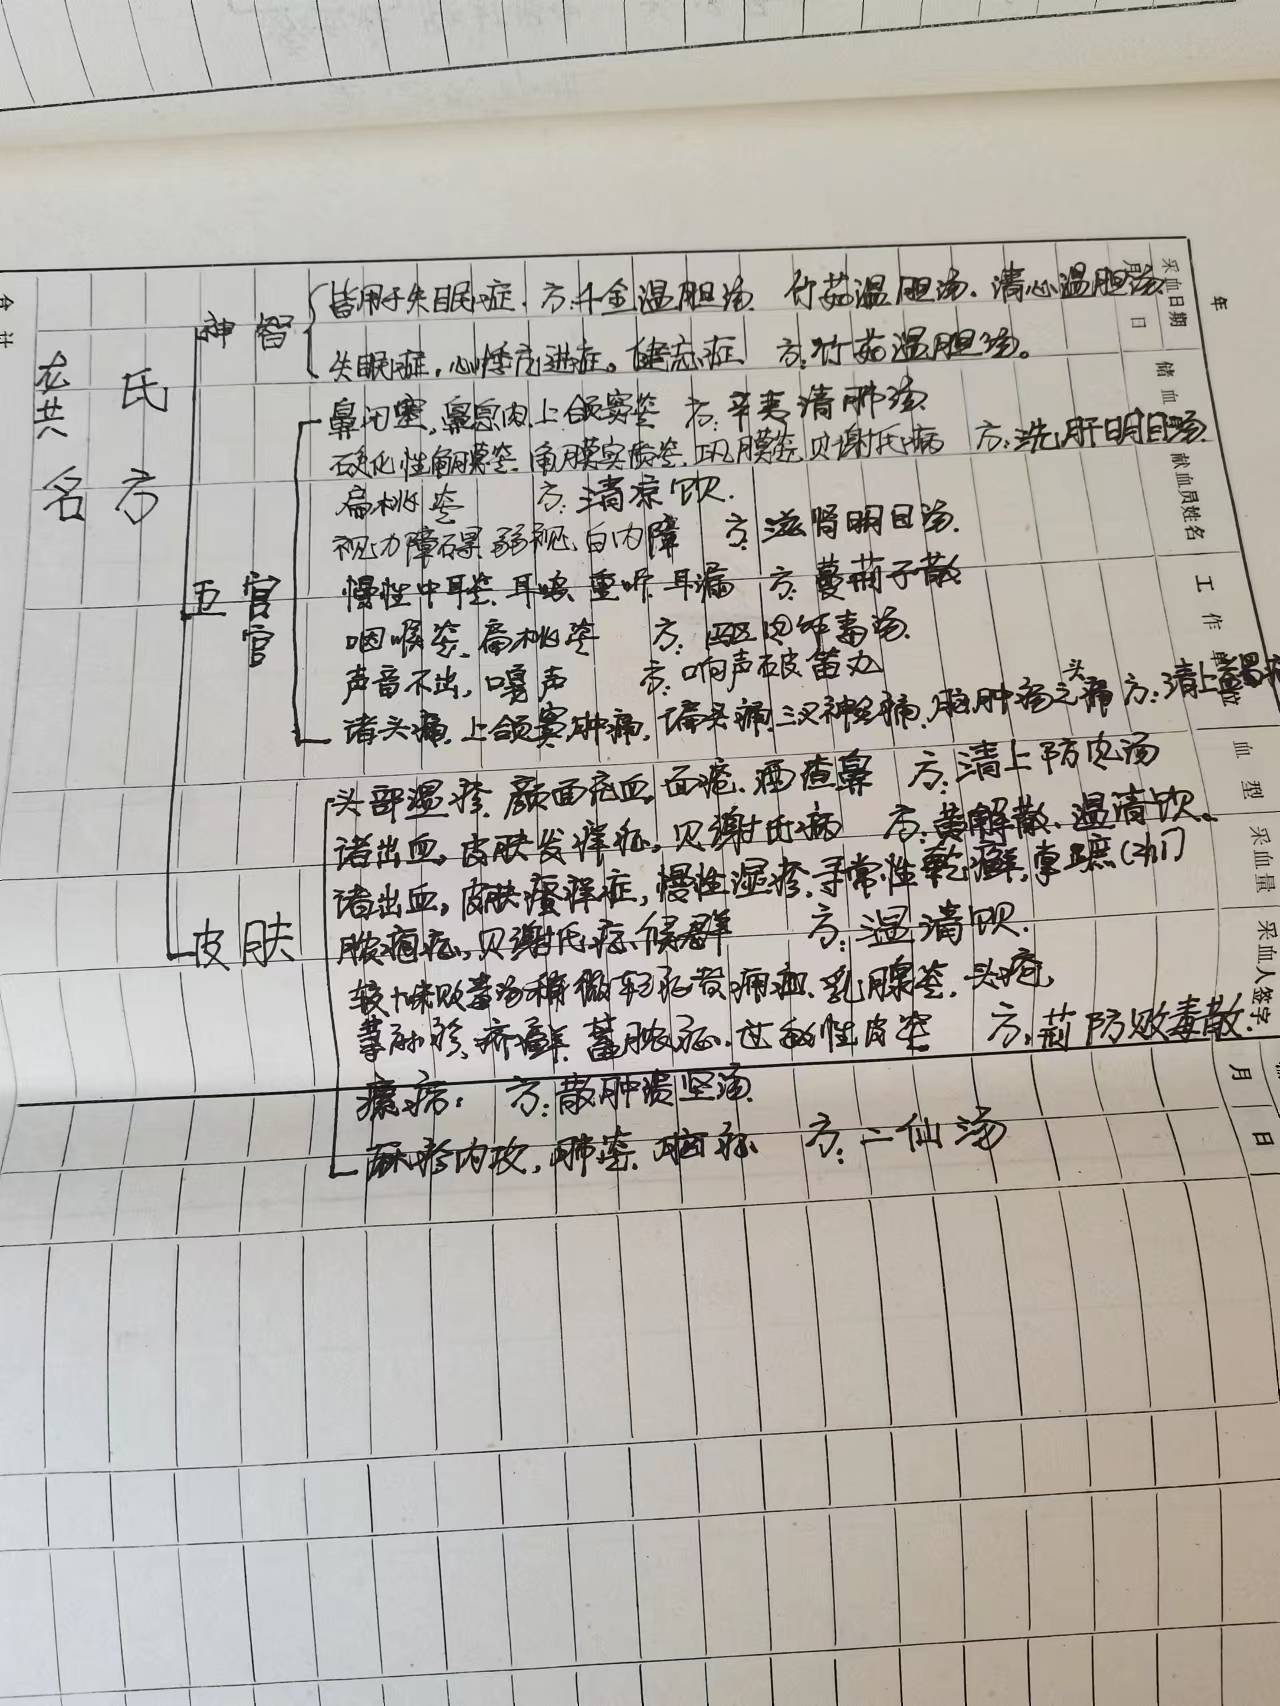 年
采血日期
月 日
储血
献血员姓名
工作单位
血型
采血量
采血人签字
月 日
合计
龙 氏
共
名 方
神智
皆用于失眠症. 方:千金温胆汤 竹茹温胆汤. 清心温胆汤
失眠症, 心悸亢进症。健忘症 方:竹茹温胆汤。
五官
官
鼻闭塞, 鼻息肉, 上颌窦炎 方:辛夷清肺汤
硬化性角膜炎. 角膜实质炎. 巩膜炎. 贝谢氏病 方:洗肝明目汤.
扁桃炎 方:清凉饮.
视力障碍. 弱视. 白内障 方:滋肾明目汤.
慢性中耳炎. 耳 重听. 耳漏 方:蔓荊子散
咽喉炎. 扁桃炎 方:驱 解毒汤.
声音不出, 嘎声 方:响声破笛丸
头
诸头痛. 上颌窦肿痛. 偏头痛. 三叉神经痛. 脑肿疡之痛 方:清上蠲痛
皮肤
头部湿疹. 颜面充血. 面疮. 酒渣鼻 方:清上防 汤
诸出血, 皮肤发痒症, 贝谢氏病 方:黄解散. 温清饮。
诸出血, 皮肤瘙痒症, 慢性湿疹. 寻常性乾癣. 掌
脓疱症. 贝谢氏症候群 方:温清饮.
较十味败毒汤稍微轻症 乳腺炎. 头疮.
荨麻疹. 疥癣. 蓄脓症. 过敏性皮炎 方:荊防败毒散.
瘰疬: 方:散肿溃坚汤.
麻疹内攻, 肺炎. 脑症 方:二仙汤